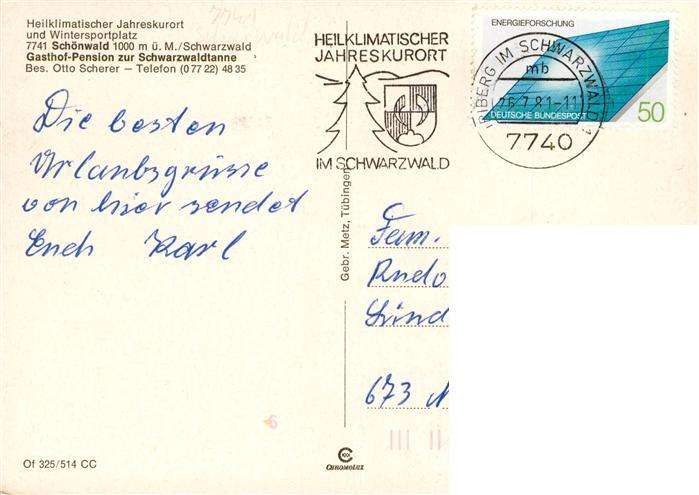 Heilklimatischer Jahreskurort
und Wintersportplatz
7741 Schönwald 1000 m ü. M./Schwarzwald
Gasthof-Pension zur Schwarzwaldtanne
Bes. Otto Scherer – Telefon (0 77 22) 48 35
7741
HEILKLIMATISCHER
JAHRESKURORT
IM SCHWARZWALD
ENERGIEFORSCHUNG
DEUTSCHE BUNDESPOST
50
IM SCHWARZWALD
mb
26.7.81-11
7740
Die besten
Urlaubsgrüsse
von hier sendet
Euch Karl
Gebr. Metz, Tübingen
Fam.
Rudo
Lind
673 N
6
Of 325/514 CC
CHROMOLUX